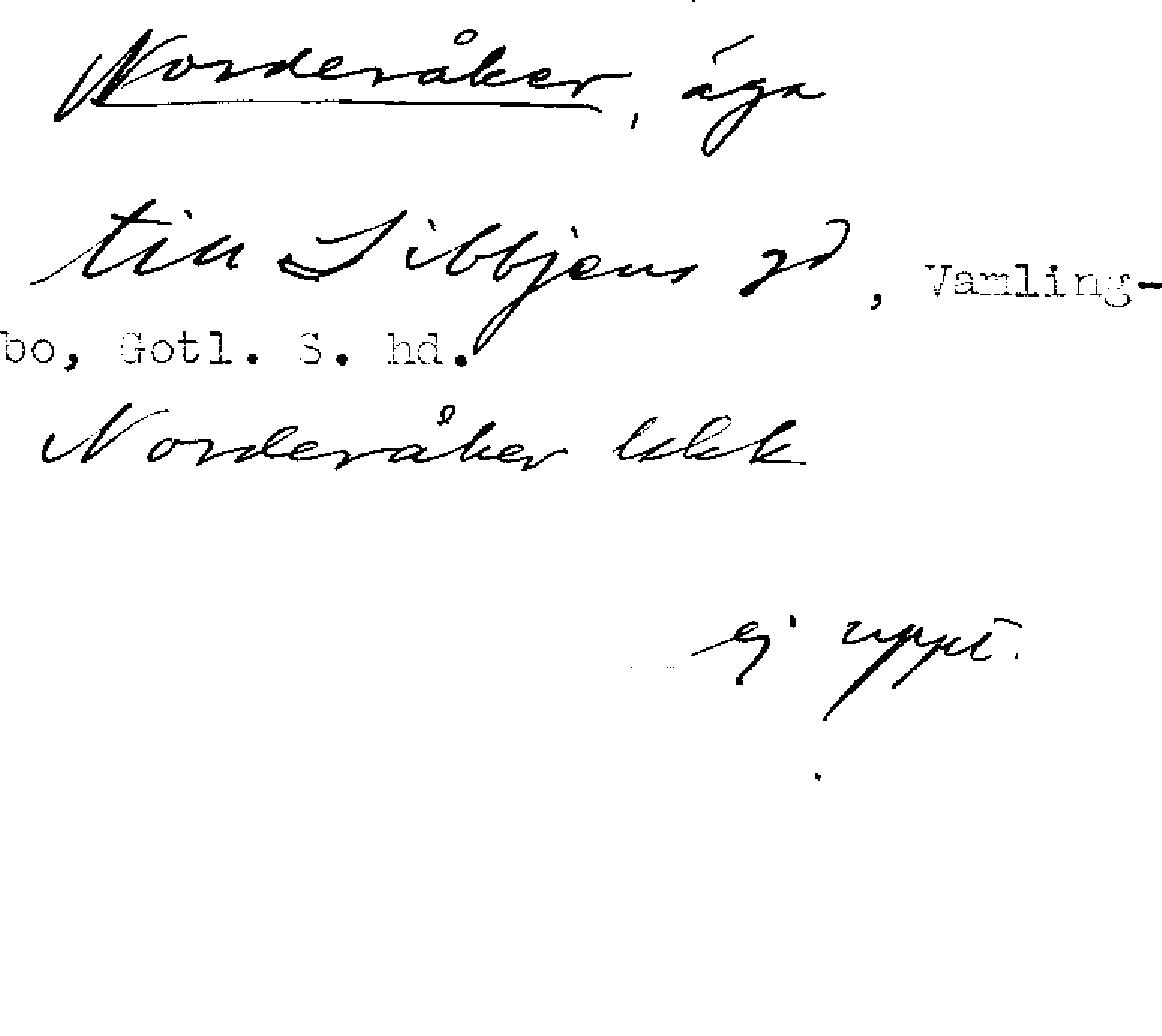 Norderåker, äga
till Sibbjens gd, Vamling-
bo, Gotl. S. hd.
Norderåker kkk
ej uppt.